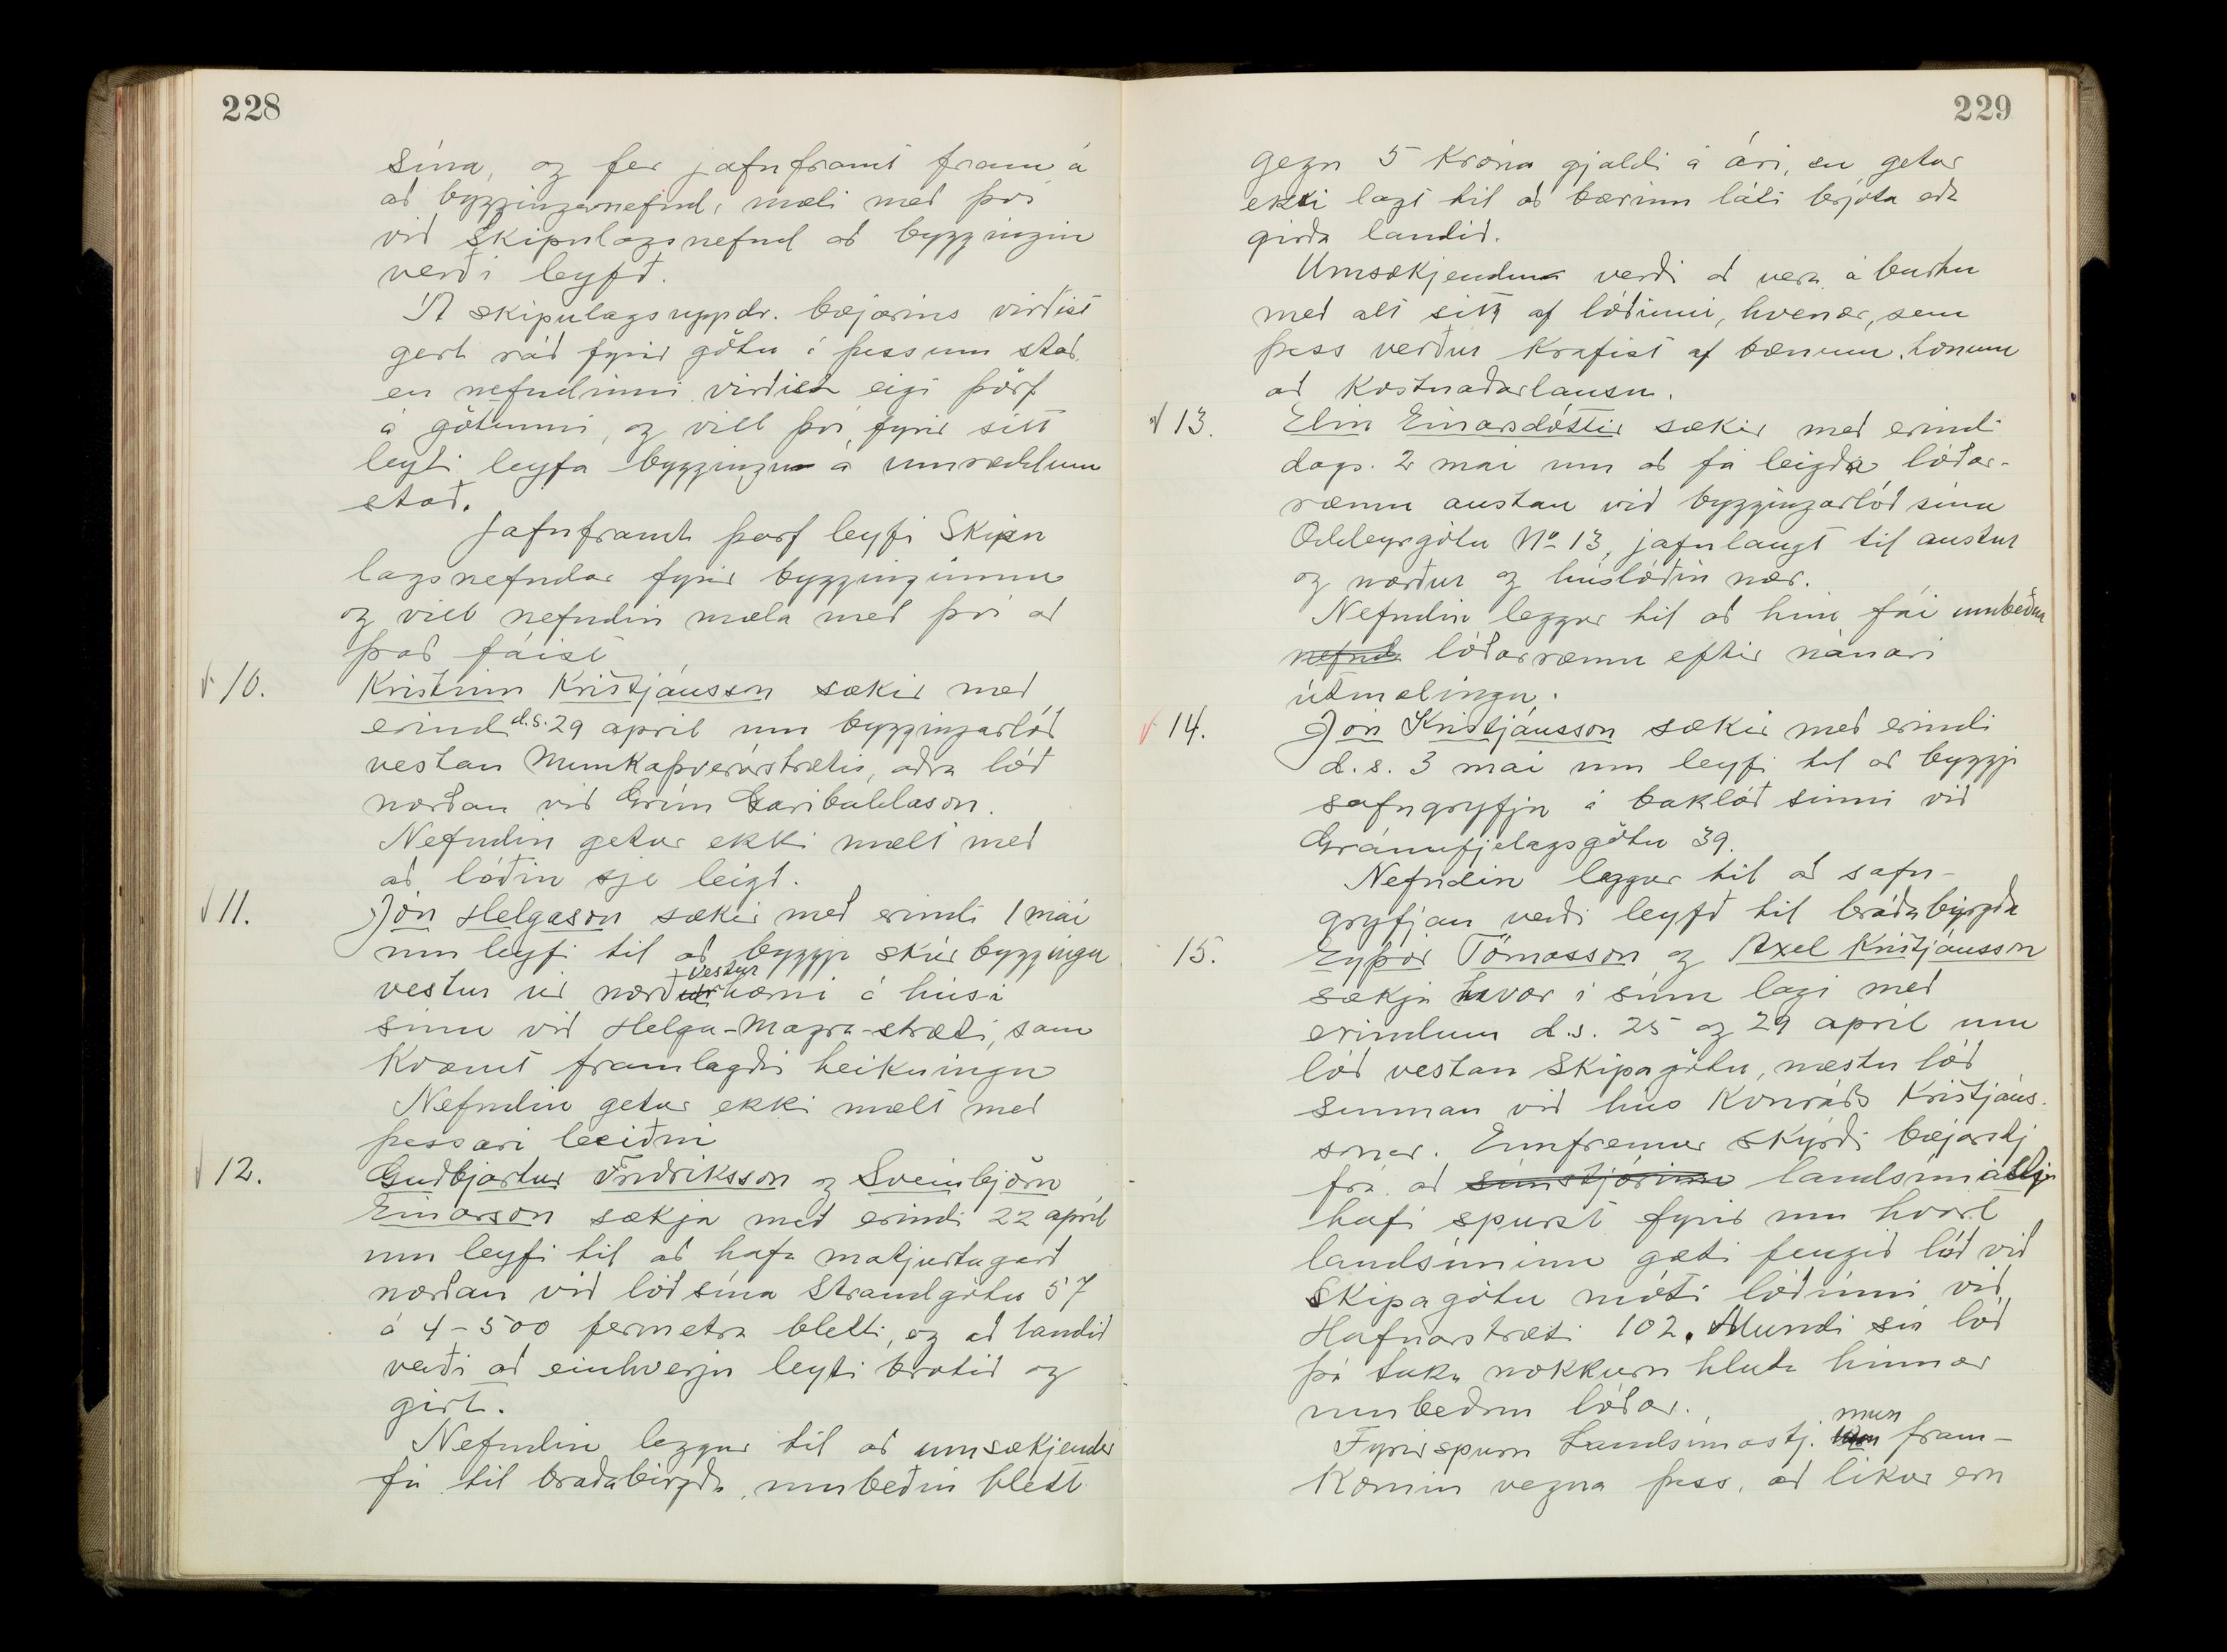 228
sína, og fer jafnframt fram á
að byggingarnefnd, mæli með því
við skipulagsnefnd að byggingin
verði leyfð.
Á skipulagsuppdr. bæjarins virðist
gert ráð fyrir götu í þessum stað,
en nefndinni virðist eigi þörf
á götunni, og vill því, fyrir sitt
leyti leyfa bygginguna á umræddum
stað.
Jafnframt þarf leyfi Skipu
lagsnefndar fyrir byggingunni
og vill nefndin mæla með því að
það fáist
10. Kristinn Kristjánsson sækir með
erindi d.s. 29 apríl um byggingarlóð
vestan Munkaþverárstrætis, aðra lóð
norðan við Grím Garibaldason.
Nefndin getur ekki mælt með
að lóðin sje leigð.
11. Jón Helgason sækir með erindi 1 mái
um leyfi til að byggja skúr byggingu
vestur
vestur úr norðurhorni á húsi
sínu við Helga-Magra-stræti, sam
kvæmt framlagðri teikningu
Nefndin getur ekki mælt með
þessari beiðni
12. Guðbjartur Friðriksson og Sveinbjörn
Einarson sækja með erindi 22 apríl
um leyfi til að hafa matjurtagarð
norðan við lóð sína Strandgötu 57
á 4-500 fermetra bletti, og að landið
verði að einhverju leyti brotið og
girt.
Nefndin leggur til að umsækjendur
fá til bráðabirgða, umbeðin blett
229
gegn 5 króna gjaldi á ári, en getur
ekki lagt til að bærinn láti brjóta eða
girða landið.
Umsækjendur verði að vera á burtu
með alt sitt af lóðinni, hvenær, sem
þess verður krafist af bænum, honum
að kostnaðarlausu.
13. Elin Einarsdóttir sækir með erindi
dags. 2 mai um að fá leigða lóðar-
ræmu austan við byggingarlóð sína
Oddeyrgötu No 13, jafnlangt til austur
og norður og húslóðin nær.
Nefndin leggur til að hún fái umbeðna
nefnda lóðarræmu eftir nánari
útmælingu.
14. Jón Kristjánsson sækir með erindi
d.s. 3 mai um leyfi til að byggja
safngryfju á baklóð sinni við
Gránufjelagsgötu 39.
Nefndin leggur til að safn-
gryfjan verði leyfð til bráðabyrgða
15. Eyþór Tómasson og Axel Kristjánsson
sækja hvor í sínu lagi með
erindum d.s. 25 og 29 apríl um
lóð vestan Skipagötu, næstu lóð
sunnan við hús Konráðs Kristjáns-
sonar. Ennfremur skýrði bæjarstj
frá að símstjórinn landsímastj
hafi spurst fyrir um hvort
landsíminn gæti fengið lóð við
Skipagötu móti lóðinni við
Hafnarstræti 102. Mundi sú lóð
þá taka nokkurn hluta hinnar
umbeðnu lóðar.
mun
Fyrirspurn Landsímastj. fram-
komin vegna þess, að líkur eru